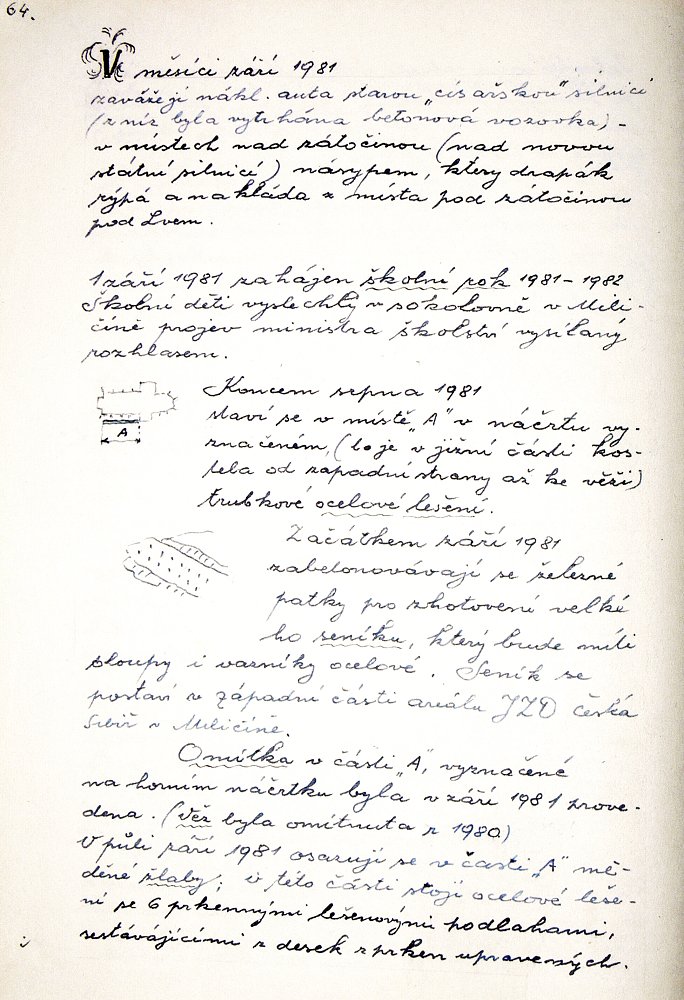 64.
V měsíci září 1981
zavážejí nákl. auta starou „císařskou" silnici
(z níž byla vytrhána betonová vozovka) -
v místech nad zátočinou (nad novou
státní silnicí) násypem, který drapák
rýpá a nakládá z místa pod zátočinou
pod Lvem.
1 září 1981 zahájen školní rok 1981-1982
Školní děti vyslechly v sokolovně v Mili-
číně projev ministra školství vysílaný
rozhlasem.
Koncem srpna 1981
staví se v místě „A" v náčrtu vy-
značeném, (to je v jižní části kos-
tela od západní strany až ke věži)
trubkové ocelové lešení.
A
Začátkem září 1981
zabetonovávají se železné
patky pro zhotovení velké
ho seníku, který bude míti
sloupy i vazníky ocelové. Seník se
postaví v západní části areálu JZD česká
Sibiř v Miličíně.
Omítka v části „A", vyznačené
na horním náčrtku byla v září 1981 prove-
dena. (Věž byla omítnuta r 1980)
V půli září 1981 osazují se v části „A" mě-
děné žlaby; v této části stojí ocelové leše-
ní se 6 prkennými lešenovými podlahami,
sestávajícími z desek z prken upravených.